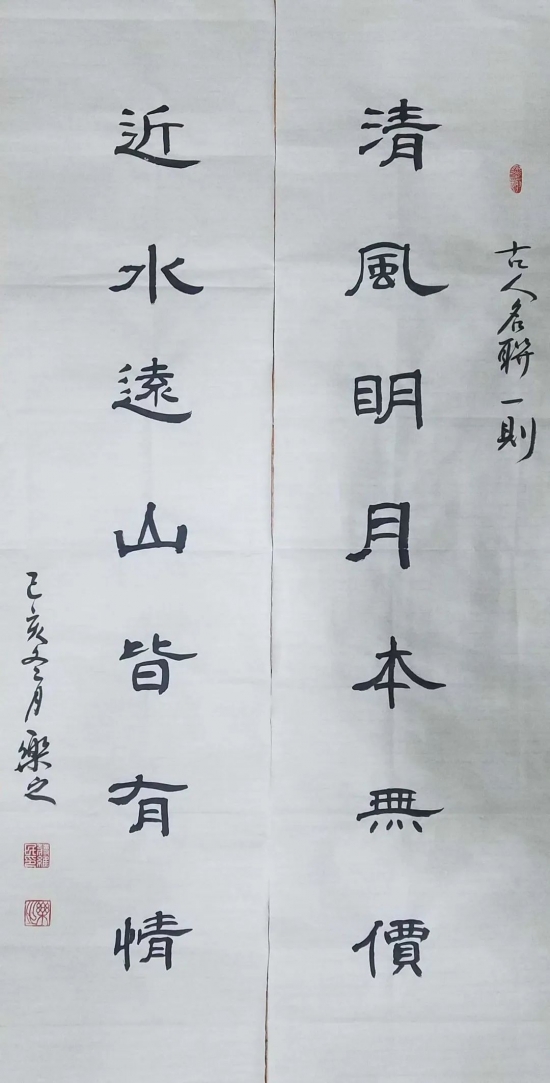 古人名聯一則
清風明月本無價
近水遠山皆有情
己亥冬月樂之